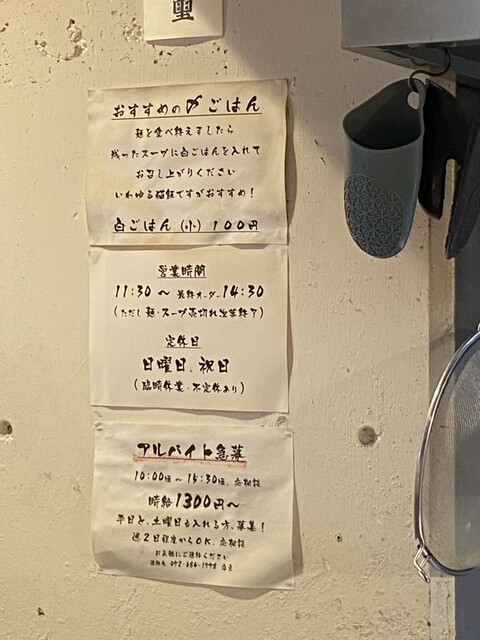 おすすめの〆ごはん
麺を食べ終えましたら
残ったスープに白ごはんを入れて
お召し上がりください
いわゆる猫飯ですがおすすめ!
白ごはん (小) 100円
営業時間
11:30 ~ 最終オーダー 14:30
(ただし麺・スープ売切れ次第終了)
定休日
日曜日、祝日
(臨時休業・不定休あり)
アルバイト急募
10:00頃~15:30頃、応相談
時給1300円~
平日と、土曜日も入れる方、募集!
週2日程度からOK、応相談
お気軽にご連絡ください